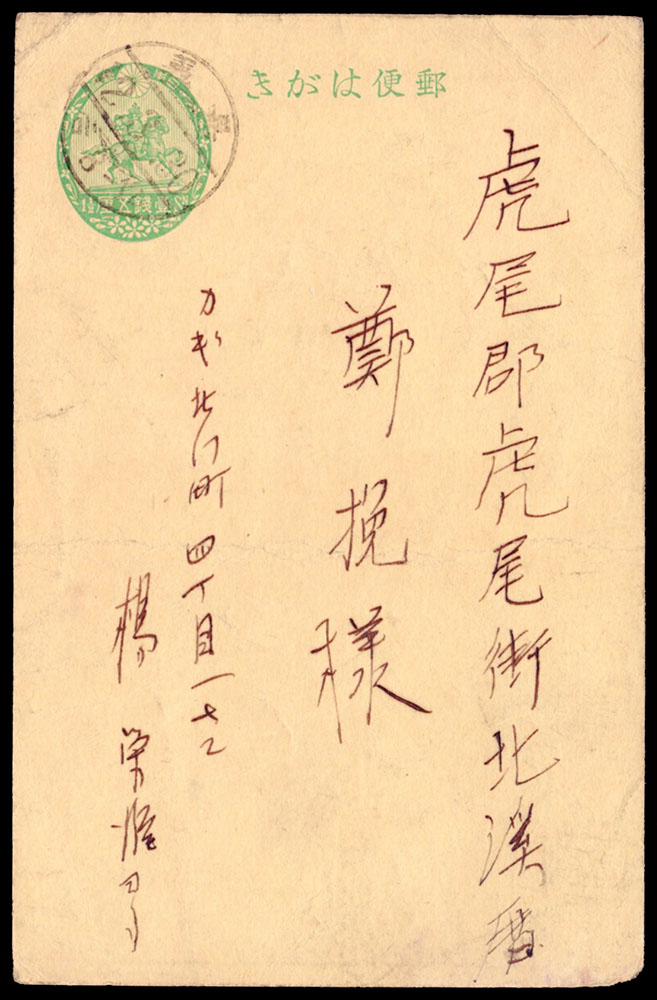 きがは便郵
虎尾郡虎尾街北溪厝
鄭挽様
カギ北门町四丁目一七二
楊